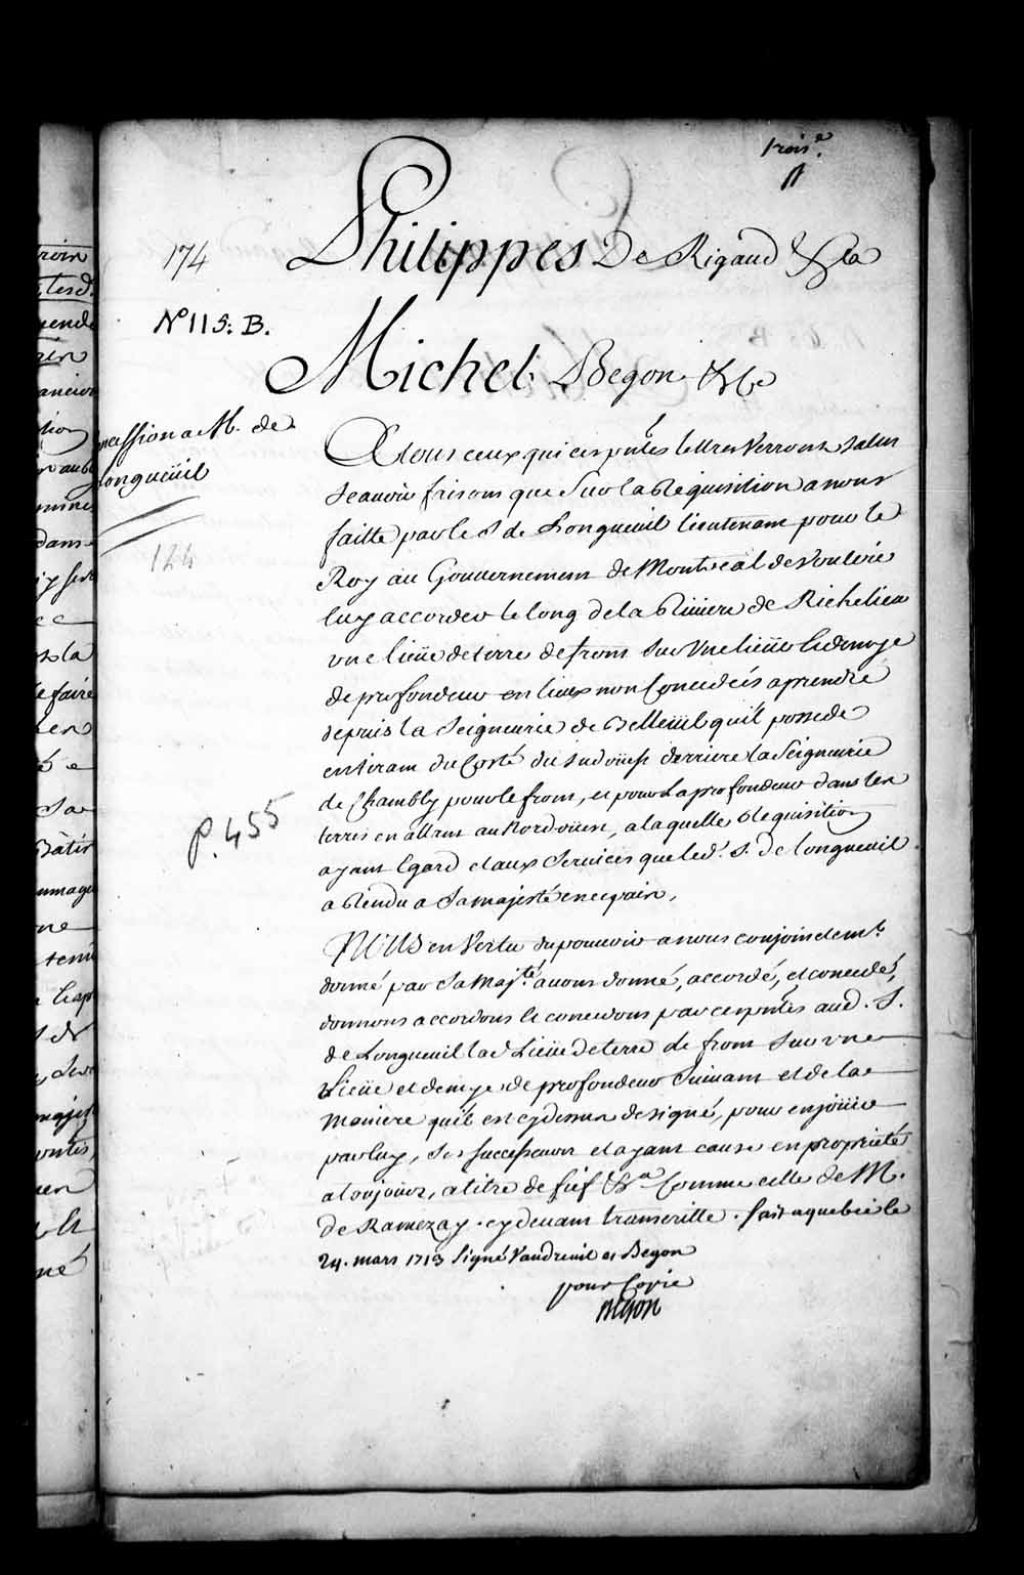 trois.e
174
Philippes De Rigaud &ca
N° 115: B.
Michel Begon &ca
ncession a M. de
Longueüil
124
P. 455
A tous ceux qui ces pntes lettres Verront Salut
Scauoir faisons que Sur la Requisition a nous
faitte par le S. de Longueuil lieutenant pour le
Roy au Gouuernement de Montreal de Vouloir
luy accorder le long de la Riuiere de Richelieu
vne lieüe de terre de front Sur Vne lieüe & demye
de profondeur en lieux non Concedées a prendre
depuis la Seigneurie de Belleüil qu'il possede
en tirant du Costé du Sudoüest derriere la Seigneurie
de Chambly pour le front, et pour La profondeur dans les
terres en allant au Nordoüest, a laquelle Requisition
ayant Egard et aux Services que led. S. de Longueuil
a Rendu a Sa majesté en ce païs,
NOUS en Vertu du pouuoir a nous conjoinctemt
donné par Sa Majté auons donné, accordé, et concedé,
donnons accordons et concedons par ces pntes aud. S.
de Longueuil lad Lieüe de terre de front Sur vne
Lieüe et demye de profondeur Suiuant et de la
maniere qu'il est cy dessus designé, pour en joüir
par luy, Ses Successeurs et ayant cause en propriété
a toujours, a titre de fief &ca Comme celle de M.
de Ramezay cy deuant transcritte. fait a quebec le
24. mars 1713 Signé Vaudreuil et Begon
pour Copie
BEGON